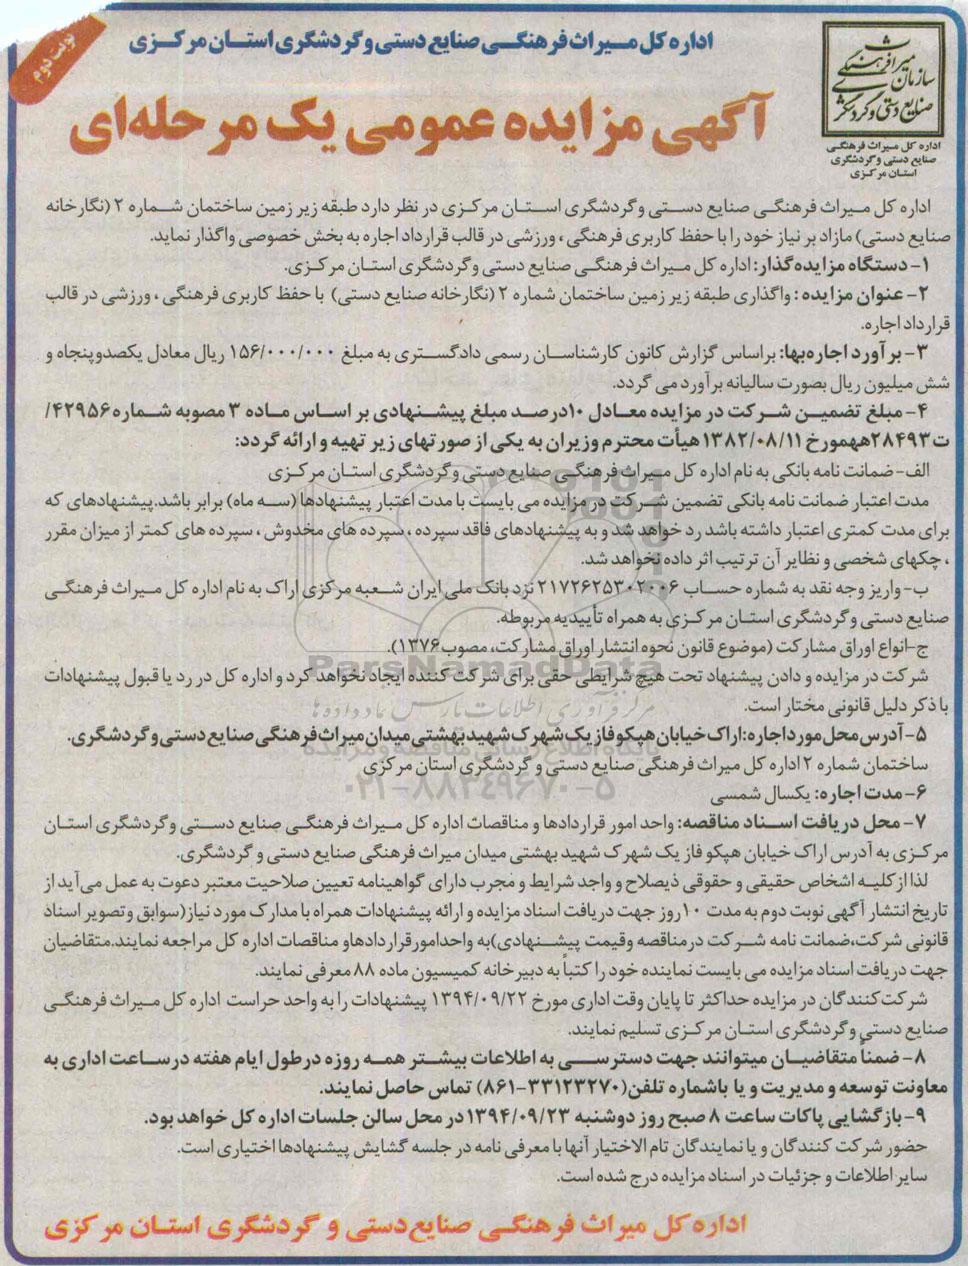 نوبت دوم
اداره کل میراث فرهنگی صنایع دستی و گردشگری استان مرکزی
سازمان میراث فرهنگی
صنایع دستی و گردشگری
اداره کل میراث فرهنگی
صنایع دستی و گردشگری
استان مرکزی
آگهی مزایده عمومی یک مرحله‌ای
اداره کل میراث فرهنگی صنایع دستی وگردشگری استان مرکزی در نظر دارد طبقه زیر زمین ساختمان شماره ۲ (نگارخانه
صنایع دستی) مازاد بر نیاز خود را با حفظ کاربری فرهنگی ، ورزشی در قالب قرارداد اجاره به بخش خصوصی واگذار نماید.
۱- دستگاه مزایده‌گذار: اداره کل میراث فرهنگی صنایع دستی وگردشگری استان مرکزی.
۲- عنوان مزایده : واگذاری طبقه زیر زمین ساختمان شماره ۲ (نگارخانه صنایع دستی) با حفظ کاربری فرهنگی ، ورزشی در قالب
قرارداد اجاره.
۳- برآورد اجاره‌بها: براساس گزارش کانون کارشناسان رسمی دادگستری به مبلغ ۱۵۶/۰۰۰/۰۰۰ ریال معادل یکصدوپنجاه و
شش میلیون ریال بصورت سالیانه برآورد می گردد.
۴- مبلغ تضمین شرکت در مزایده معادل ۱۰درصد مبلغ پیشنهادی بر اساس ماده ۳ مصوبه شماره ۴۲۹۵۶/
ت۲۸۴۹۳هـمورخ ۱۳۸۲/۰۸/۱۱ هیأت محترم وزیران به یکی از صورتهای زیر تهیه و ارائه گردد:
الف- ضمانت نامه بانکی به نام اداره کل میراث فرهنگی صنایع دستی وگردشگری استان مرکزی
مدت اعتبار ضمانت نامه بانکی تضمین شرکت در مزایده می بایست با مدت اعتبار پیشنهادها (سه ماه) برابر باشد.پیشنهادهای که
برای مدت کمتری اعتبار داشته باشد رد خواهد شد و به پیشنهادهای فاقد سپرده ، سپرده های مخدوش ، سپرده های کمتر از میزان مقرر
، چکهای شخصی و نظایر آن ترتیب اثر داده نخواهد شد.
ب- واریز وجه نقد به شماره حساب ۲۱۷۲۶۲۵۳۰۲۰۰۶ نزد بانک ملی ایران شعبه مرکزی اراک به نام اداره کل میراث فرهنگی
صنایع دستی و گردشگری استان مرکزی به همراه تأییدیه مربوطه.
ج-انواع اوراق مشارکت (موضوع قانون نحوه انتشار اوراق مشارکت، مصوب۱۳۷۶).
شرکت در مزایده و دادن پیشنهاد تحت هیچ شرایطی حقی برای شرکت کننده ایجاد نخواهد کرد و اداره کل در رد یا قبول پیشنهادات
با ذکر دلیل قانونی مختار است.
ParsNamadData
مرکز فرآوری اطلاعات پارس نماد داده ها
پایگاه اطلاع رسانی مناقصه و مزایده
۰۲۱-۸۸۳۴۹۶۷۰-۵
۵- آدرس محل مورد اجاره:اراک خیابان هپکو فاز یک شهرک شهید بهشتی میدان میراث فرهنگی صنایع دستی و گردشگری.
ساختمان شماره ۲ اداره کل میراث فرهنگی صنایع دستی و گردشگری استان مرکزی
۶- مدت اجاره: یکسال شمسی
۷- محل دریافت اسناد مناقصه: واحد امور قراردادها و مناقصات اداره کل میراث فرهنگی صنایع دستی وگردشگری استان
مرکزی به آدرس اراک خیابان هپکو فاز یک شهرک شهید بهشتی میدان میراث فرهنگی صنایع دستی و گردشگری.
لذا از کلیه اشخاص حقیقی و حقوقی ذیصلاح و واجد شرایط و مجرب دارای گواهینامه تعیین صلاحیت معتبر دعوت به عمل می‌آید از
تاریخ انتشار آگهی نوبت دوم به مدت ۱۰روز جهت دریافت اسناد مزایده و ارائه پیشنهادات همراه با مدارک مورد نیاز(سوابق و تصویر اسناد
قانونی شرکت،ضمانت نامه شرکت درمناقصه وقیمت پیشنهادی)به واحدامورقراردادهاو مناقصات اداره کل مراجعه نمایند.متقاضیان
جهت دریافت اسناد مزایده می بایست نماینده خود را کتباً به دبیرخانه کمیسیون ماده ۸۸ معرفی نمایند.
شرکت‌کنندگان در مزایده حداکثر تا پایان وقت اداری مورخ ۱۳۹۴/۰۹/۲۲ پیشنهادات را به واحد حراست اداره کل میراث فرهنگی
صنایع دستی وگردشگری استان مرکزی تسلیم نمایند.
۸- ضمناً متقاضیان میتوانند جهت دسترسی به اطلاعات بیشتر همه روزه درطول ایام هفته درساعت اداری به
معاونت توسعه و مدیریت و یا باشماره تلفن(۳۳۱۲۳۲۷۰-۸۶۱) تماس حاصل نمایند.
۹- بازگشایی پاکات ساعت ۸ صبح روز دوشنبه ۱۳۹۴/۰۹/۲۳ در محل سالن جلسات اداره کل خواهد بود.
حضور شرکت کنندگان و یا نمایندگان تام الاختیار آنها با معرفی نامه در جلسه گشایش پیشنهادها اختیاری است.
سایر اطلاعات و جزئیات در اسناد مزایده درج شده است.
اداره کل میراث فرهنگی صنایع‌دستی و گردشگری استان مرکزی